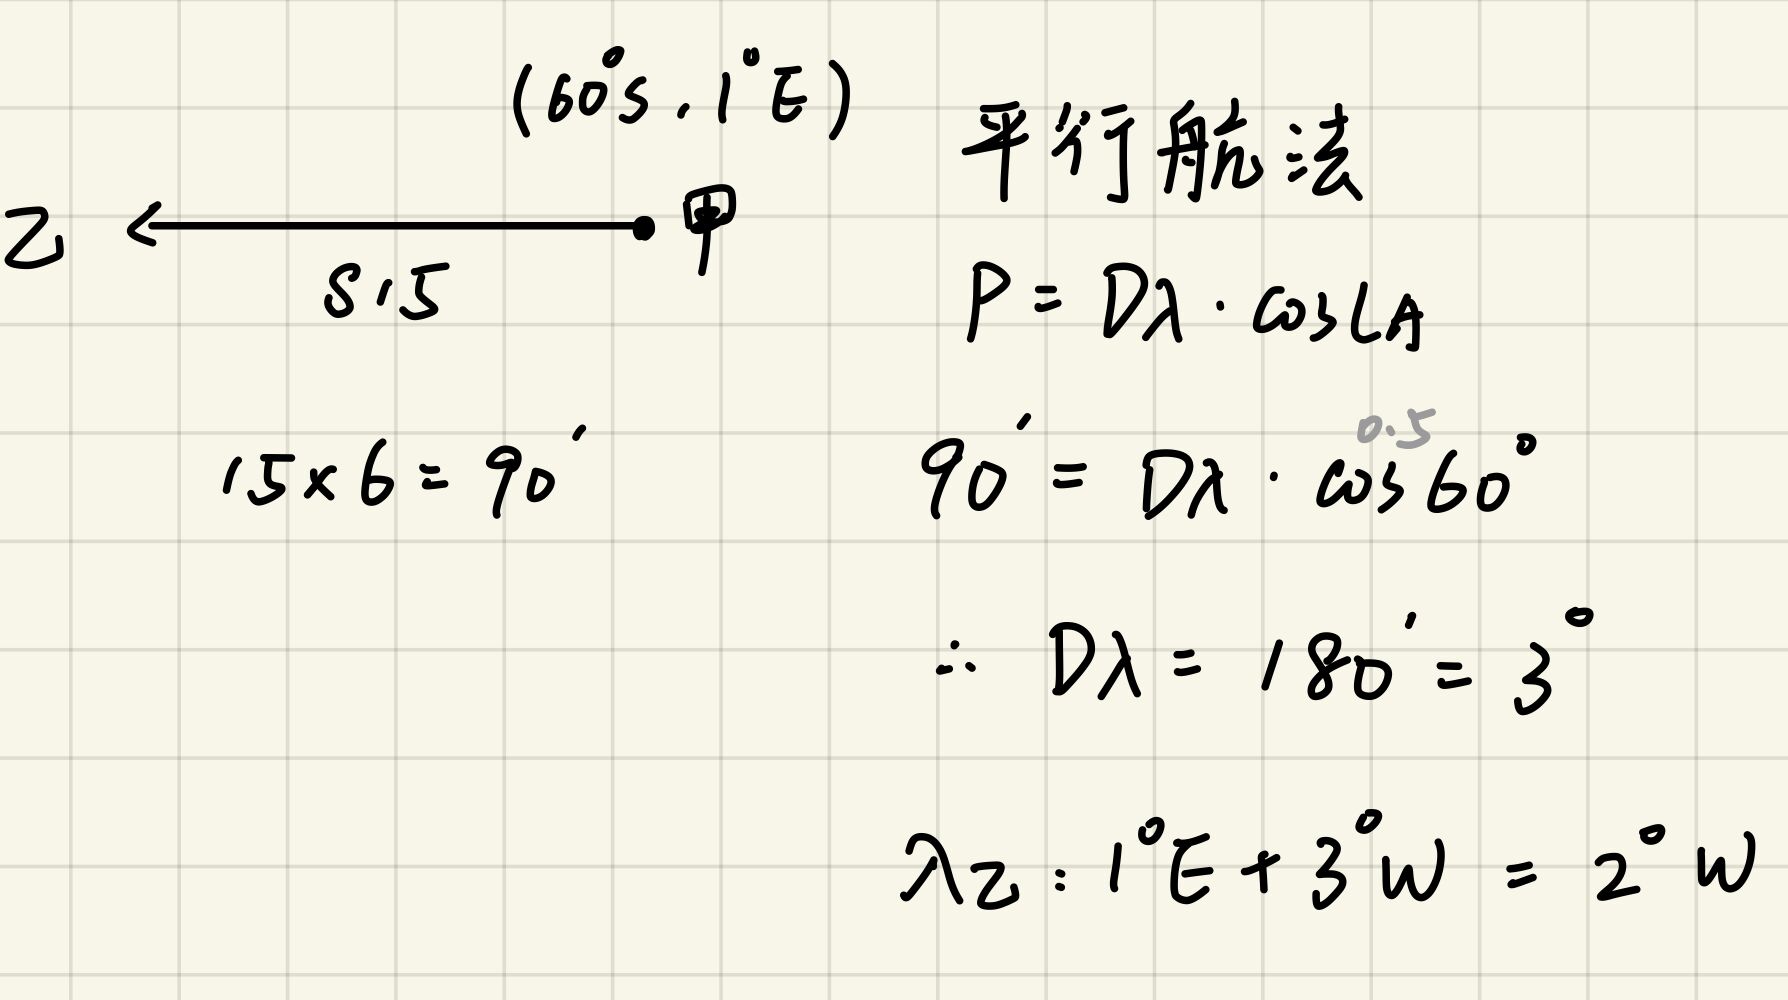 (60°S, 1°E)
乙 甲
S15
15×6=90′
平行航法
P = Dλ · cosLA
0.5
90′ = Dλ · cos60°
∴ Dλ = 180′ = 3°
λ乙 : 1°E + 3°W = 2°W